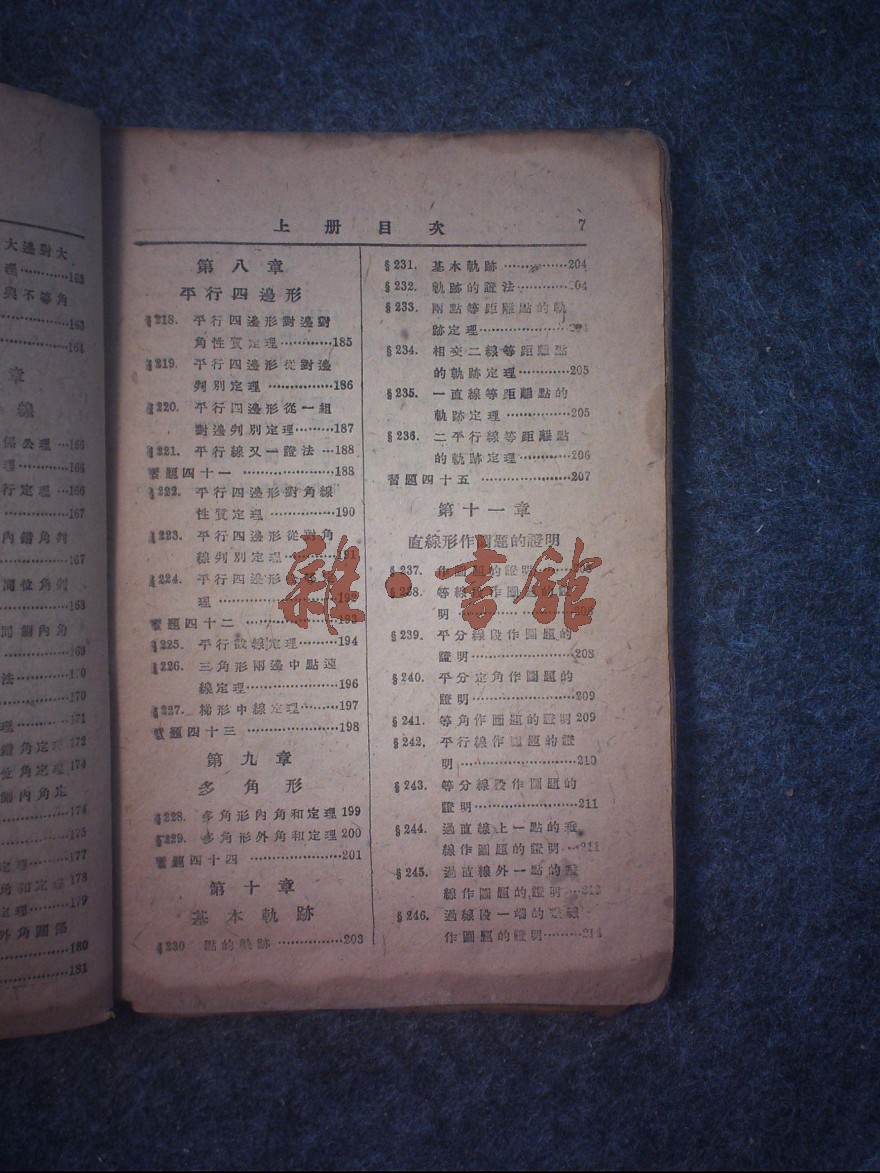 大邊對大
理⋯⋯⋯163
與不等角
⋯⋯⋯163
⋯⋯⋯164
章
線
係公理⋯166
理⋯⋯⋯166
行定理⋯166
⋯⋯⋯167
內錯角判
⋯⋯⋯167
同位角判
⋯⋯⋯168
同側內角
⋯⋯⋯169
法⋯⋯⋯170
⋯⋯⋯170
理⋯⋯⋯171
錯角定理 172
位角定理 174
側內角定
⋯⋯⋯174
⋯⋯⋯175
定理⋯⋯177
角和定理 178
定理⋯⋯179
外角關係
⋯⋯⋯180
⋯⋯⋯181
上冊目次 7
第八章
平行四邊形
§218. 平行四邊形對邊對
角性質定理⋯⋯⋯185
§219. 平行四邊形從對邊
判別定理⋯⋯⋯186
§220. 平行四邊形從一組
對邊判別定理⋯⋯⋯187
§221. 平行線又一證法⋯188
習題四十一⋯⋯⋯188
§222. 平行四邊形對角線
性質定理⋯⋯⋯190
§223. 平行四邊形從對角
線判別定理⋯⋯⋯191
§224. 平行四邊形
理⋯⋯⋯192
習題四十二⋯⋯⋯193
§225. 平行截線定理⋯⋯⋯194
§226. 三角形兩邊中點連
線定理⋯⋯⋯196
§227. 梯形中線定理⋯⋯⋯197
習題四十三⋯⋯⋯198
第九章
多角形
§228. 多角形內角和定理 199
§229. 多角形外角和定理 200
習題四十四⋯⋯⋯201
第十章
基本軌跡
§230 點的軌跡⋯⋯⋯203
§231. 基本軌跡⋯⋯⋯204
§232. 軌跡的證法⋯⋯⋯204
§233. 兩點等距離點的軌
跡定理⋯⋯⋯204
§234. 相交二線等距離點
的軌跡定理⋯⋯⋯205
§235. 一直線等距離點的
軌跡定理⋯⋯⋯205
§236. 二平行線等距離點
的軌跡定理⋯⋯⋯206
習題四十五⋯⋯⋯207
第十一章
直線形作圖題的證明
§237. 作圖題的證明⋯⋯⋯
§238. 等線段作圖題的證
明⋯⋯⋯208
§239. 平分線段作圖題的
證明⋯⋯⋯208
§240. 平分定角作圖題的
證明⋯⋯⋯209
§241. 等角作圖題的證明 209
§242. 平行線作圖題的證
明⋯⋯⋯210
§243. 等分線段作圖題的
證明⋯⋯⋯211
§244. 過直線上一點的垂
線作圖題的證明⋯211
§245. 過直線外一點的垂
線作圖題的證明⋯213
§246. 過線段一端的垂線
作圖題的證明⋯⋯⋯214
雜·書館